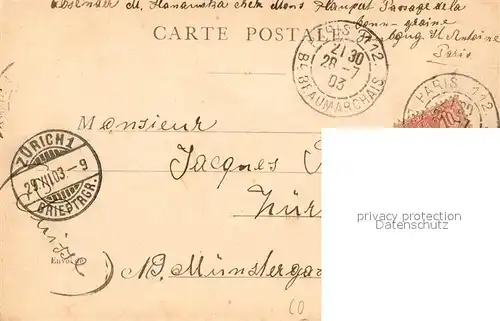 Absender M. Hanamitza chez Mons Haupert Passage de la
bonne graine
faug St Antoine
Paris
CARTE POSTAL
PARIS 112
21 30
28 - 7
03
Bd BEAUMARCHAIS
PARIS 112
Monsieur
Jacques
Zür
ZÜRICH 1
29.XII.03 - 9
BRIEFTRGR.
Suisse
Envoi
Münsterga
privacy protection
Datenschutz
CO